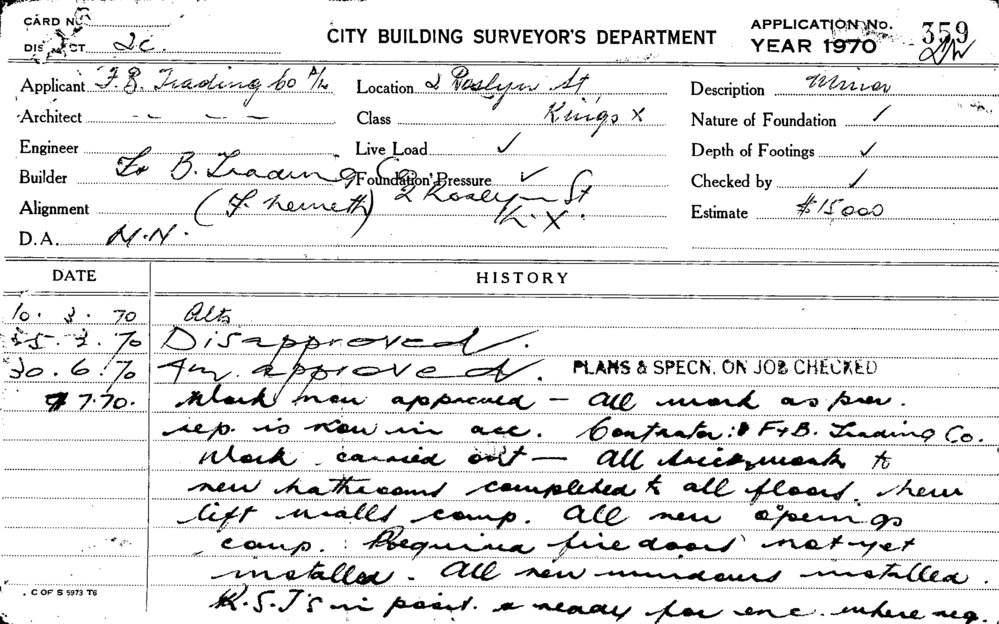 CARD No.
DISTRICT 2c.
CITY BUILDING SURVEYOR'S DEPARTMENT
APPLICATION No. 359
YEAR 1970
Applicant F. B. Trading Co P/L
Location 2 Roslyn St
Description Minor
Architect - - - -
Class Kings X
Nature of Foundation ✓
Engineer
Live Load ✓
Depth of Footings ✓
Builder F & B. Trading Co
Foundation Pressure ✓
Checked by ✓
Alignment (F. Nemeth) 2 Roslyn St
K.X.
Estimate $15000
D.A. M.N.
DATE
HISTORY
10. 3. 70 Alts
25. 3. 70 Disapproved.
30. 6. 70 Am. approved. PLANS & SPECN. ON JOB CHECKED
9 7.70. Work now approved — all work as prev.
rep. is now in acc. Contrator: F & B. Trading Co.
Work carried out — all brickwork to
new bathrooms completed to all floors. new
lift walls comp. All new openings
comp. Required fire doors not yet
installed. All new windows installed.
R.S.J's in posit. & ready for enc. where req.
C OF S 5973 T6